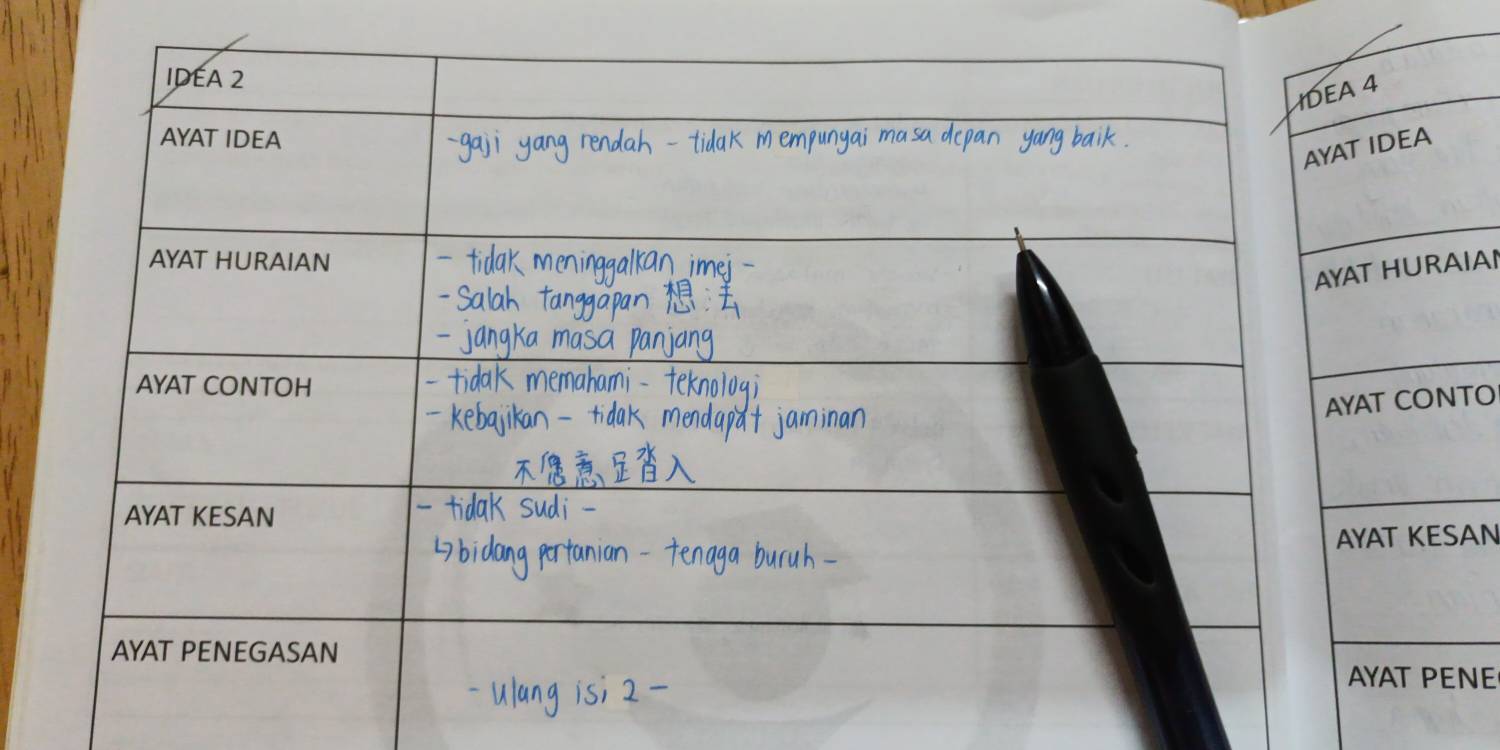 IDEA 2
AYAT IDEA
-gaji yang rendah - tidak mempunyai masa depan yang baik.
AYAT HURAIAN
- tidak meninggalkan imej -
- Salah tanggapan 想法
- jangka masa panjang
AYAT CONTOH
- tidak memahami - teknologi
- kebajikan - tidak mendapat jaminan
不愿意足踏入
AYAT KESAN
- tidak sudi -
↳ bidang pertanian - tenaga buruh -
AYAT PENEGASAN
- ulang isi 2 -
IDEA 4
AYAT IDEA
AYAT HURAIAN
AYAT CONTO
AYAT KESAN
AYAT PENE